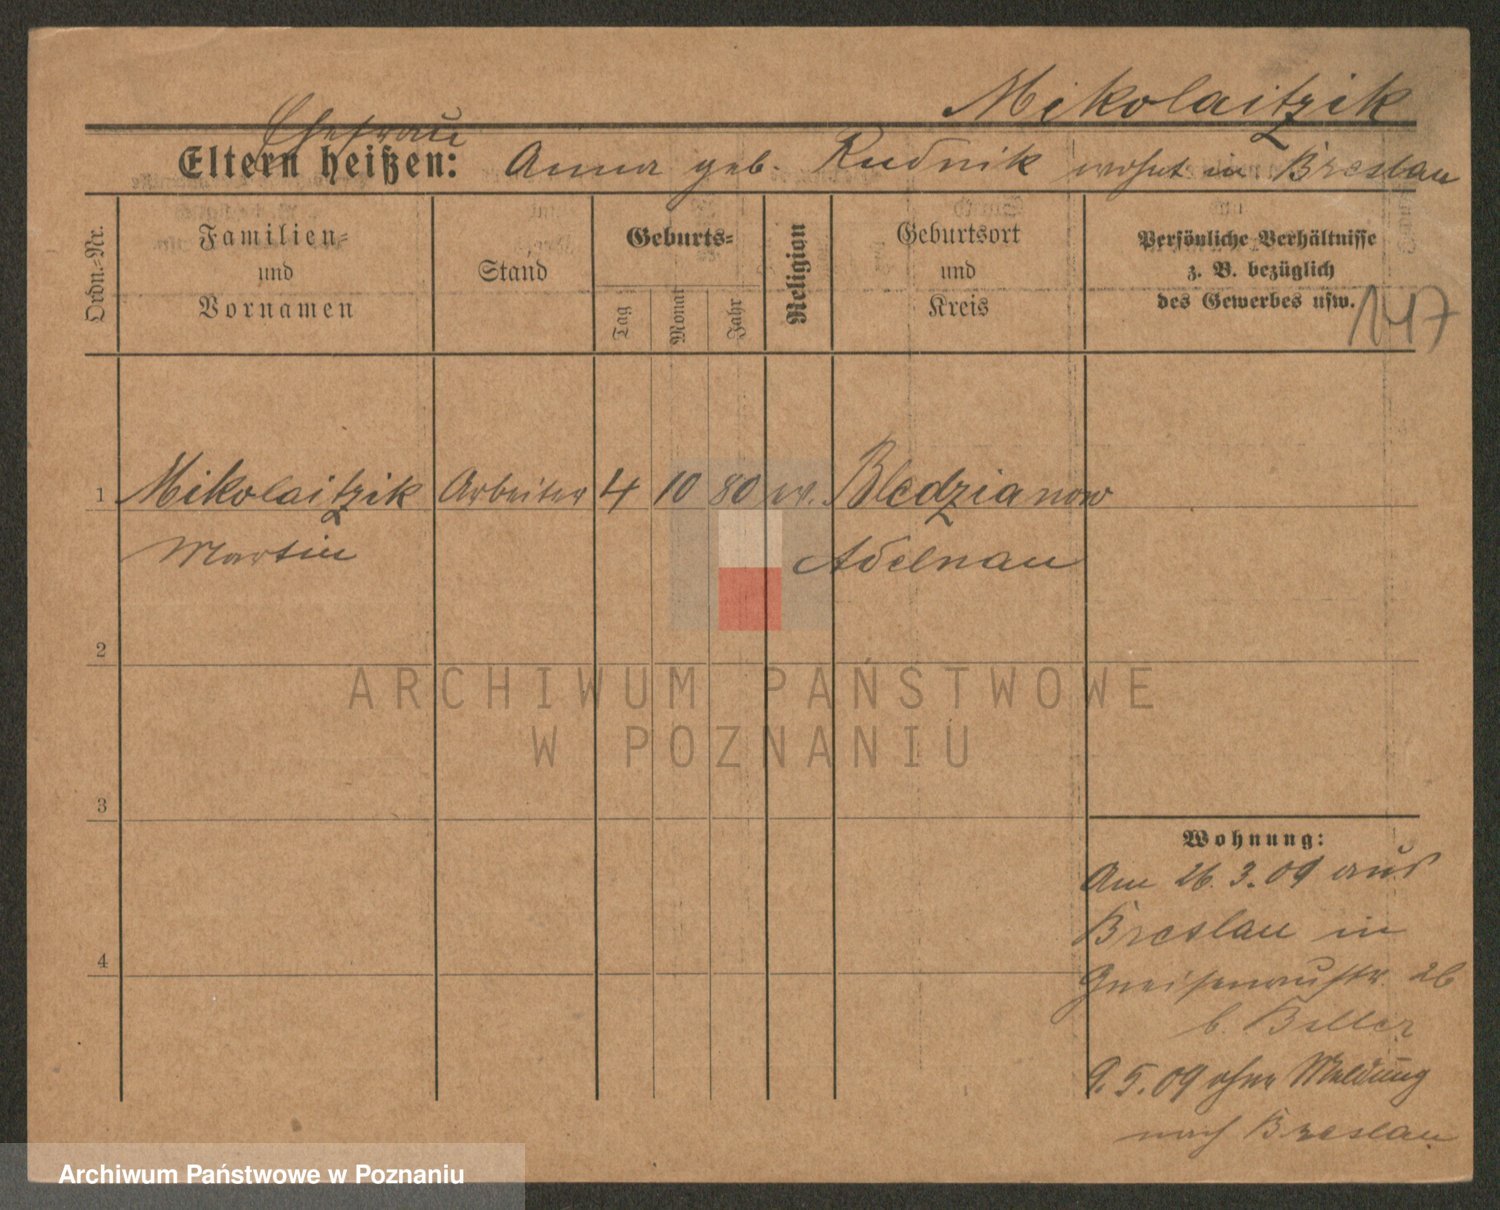 Mikolaitzik
Ehefrau
Eltern heißen: Anna geb. Rudnik wohnt in Breslau
Ordn.-Nr.
Familien-
und
Vornamen
Stand
Geburts-
Tag
Monat
Jahr
Religion
Geburtsort
und
Kreis
Persönliche Verhältnisse
z. B. bezüglich
des Gewerbes usw.
147
1 Mikolaitzik Arbeiter 4 10 80 ev. Bledzianow
Martin Adelnau
2
3
4
Wohnung:
Am 26.3.09 aus
Breslau in
Gneisenaustr. 26
b. Beller
9.5.09 ohne Meldung
nach Breslau
ARCHIWUM PAŃSTWOWE
W POZNANIU
Archiwum Państwowe w Poznaniu